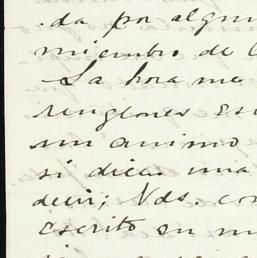 da por algun
miembro de
La hora me
renglones es
un animo
si dice una
decir; Vds. con
escrito en mi